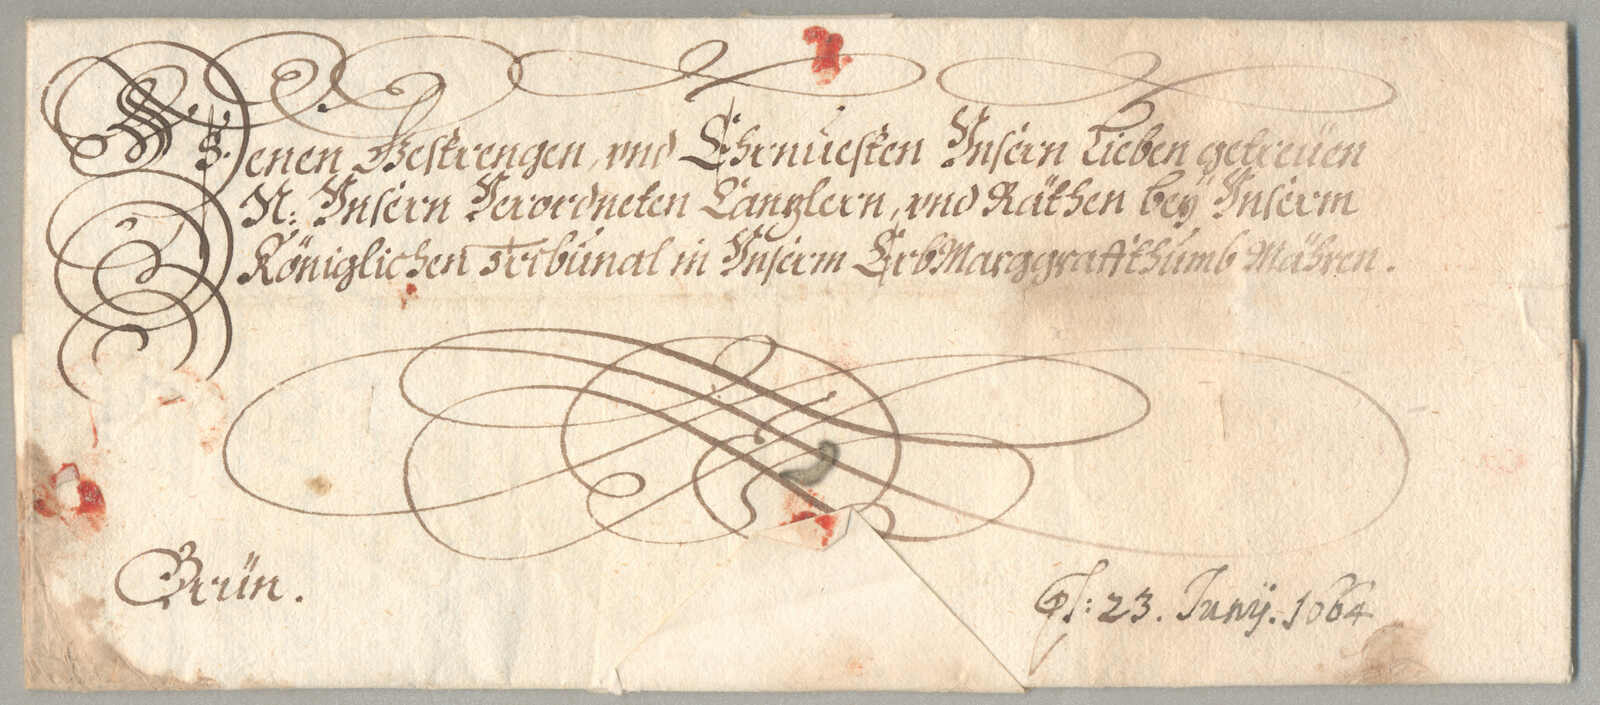 Denen Gestrengen, vnd Ehrnuesten Vnsern Lieben getreüen
N: Vnsern Verordneten Cantzlern, vnd Räthen beÿ Vnserm
Königlichen Tribunal in Vnserm ErbMarggraffthumb Mähren.
Brün.
23. Junÿ. 1664